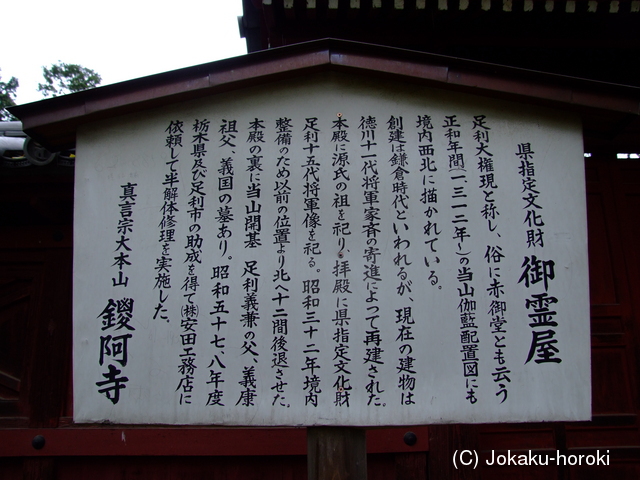 県指定文化財 御霊屋
足利大権現と称し、俗に赤御堂とも云う
正和年間(一三一二年～)の当山伽藍配置図にも
境内西北に描かれている。
創建は鎌倉時代といわれるが、現在の建物は
徳川十一代将軍家斉の寄進によって再建された。
本殿に源氏の祖を祀り、拝殿に県指定文化財
足利十五代将軍像を祀る。昭和三十二年境内
整備のため以前の位置より北へ十二間後退させた。
本殿の裏に当山開基 足利義兼の父、義康
祖父、義国の墓あり。昭和五十七、八年度
栃木県及び足利市の助成を得て㈱安田工務店に
依頼して半解体修理を実施した、
真言宗大本山 鑁阿寺
(C) Jokaku-horoki